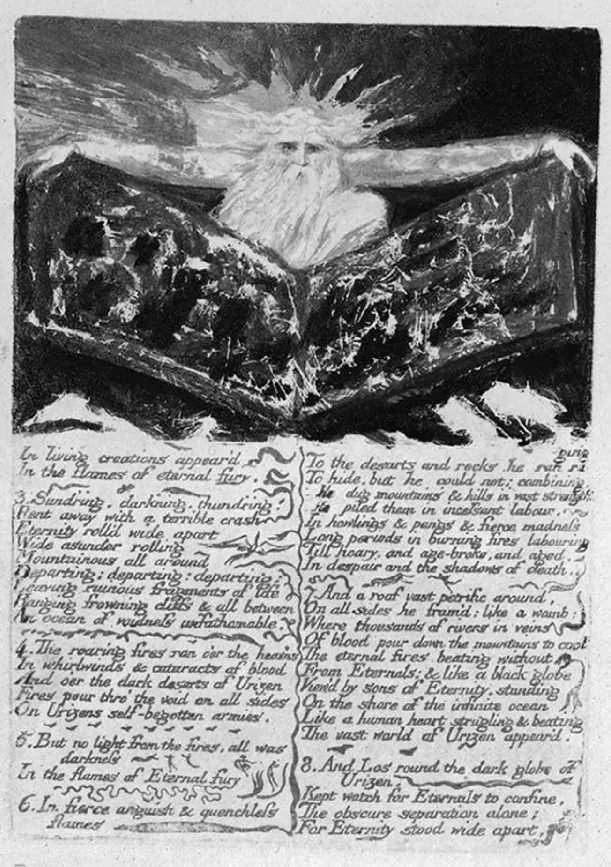 In living creations appear'd
In the flames of eternal fury.
3. Sundring, darkning, thundring!
Rent away with a terrible crash
Eternity roll'd wide apart
Wide asunder rolling
Mountainous all around
Departing; departing; departing:
Leaving ruinous fragments of life
Hanging frowning cliffs & all between
An ocean of voidness unfathomable.
4. The roaring fires ran o'er the heav'ns
In whirlwinds & cataracts of blood
And o'er the dark desarts of Urizen
Fires pour thro' the void on all sides
On Urizens self-begotten armies.
5. But no light from the fires, all was
darkness
In the flames of Eternal fury
6. In fierce anguish & quenchless
flames
To the desarts and rocks he ran
To hide, but he could not; combining
he dug mountains & hills in vast strength
He piled them in incessant labour,
In howlings & pangs & fierce madness
Long periods in burning fires labouring
Till hoary, and age-broke, and aged,
In despair and the shadows of death.
7. And a roof vast petrific around,
On all sides he fram'd: like a womb;
Where thousands of rivers in veins
Of blood pour down the mountains to cool
The eternal fires beating without
From Eternals; & like a black globe
View'd by sons of Eternity, standing
On the shore of the infinite ocean
Like a human heart strugling & beating
The vast world of Urizen appear'd.
8. And Los round the dark globe of
Urizen,
Kept watch for Eternals to confine,
The obscure separation alone;
For Eternity stood wide apart,